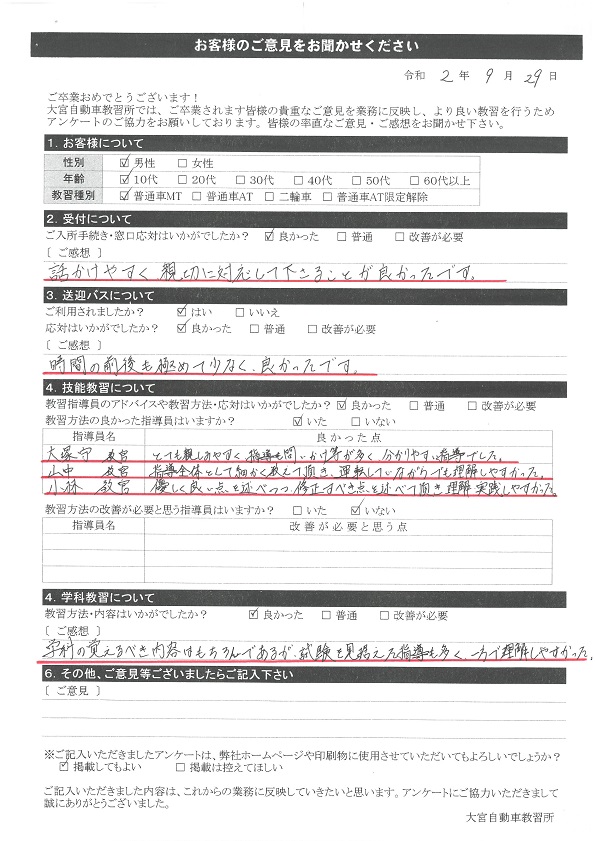 お客様のご意見をお聞かせください
令和 2 年 9 月 29 日
ご卒業おめでとうございます！
大宮自動車教習所では、ご卒業されます皆様の貴重なご意見を業務に反映し、より良い教習を行うため
アンケートのご協力をお願いしております。皆様の率直なご意見・ご感想をお聞かせ下さい。
1. お客様について
性別 ☑ 男性 □ 女性
年齢 ☑ 10代 □ 20代 □ 30代 □ 40代 □ 50代 □ 60代以上
教習種別 ☑ 普通車MT □ 普通車AT □ 二輪車 □ 普通車AT限定解除
2. 受付について
ご入所手続き・窓口応対はいかがでしたか？ ☑ 良かった □ 普通 □ 改善が必要
〔 ご感想 〕
話かけやすく親切に対応して下さることが良かったです。
3. 送迎バスについて
ご利用されましたか？ ☑ はい □ いいえ
応対はいかがでしたか？ ☑ 良かった □ 普通 □ 改善が必要
〔 ご感想 〕
時間の前後も極めて少なく、良かったです。
4. 技能教習について
教習指導員のアドバイスや教習方法・応対はいかがでしたか？ ☑ 良かった □ 普通 □ 改善が必要
教習方法の良かった指導員はいますか？ ☑ いた □ いない
指導員名 良かった点
大塚守 教官 とても親しみやすく、指導も問いかけ等が多く、分かりやすい指導でした。
山中 教官 指導全体として細かく教えて頂き、運転していながらでも理解しやすかった。
小林 教官 優しく良い点を述べつつ、修正すべき点を述べて頂き理解、実践しやすかった。
教習方法の改善が必要と思う指導員はいますか？ □ いた ☑ いない
指導員名 改善が必要と思う点
4. 学科教習について
教習方法・内容はいかがでしたか？ ☑ 良かった □ 普通 □ 改善が必要
〔 ご感想 〕
学科の覚えるべき内容はもちろんであるが、試験を見据えた指導も多く、一方で理解しやすかった。
6. その他、ご意見等ございましたらご記入下さい
〔 ご意見 〕
※ご記入いただきましたアンケートは、弊社ホームページや印刷物に使用させていただいてもよろしいでしょうか？
☑ 掲載してもよい □ 掲載は控えてほしい
ご記入いただきました内容は、これからの業務に反映していきたいと思います。アンケートにご協力いただきまして
誠にありがとうございました。
大宮自動車教習所